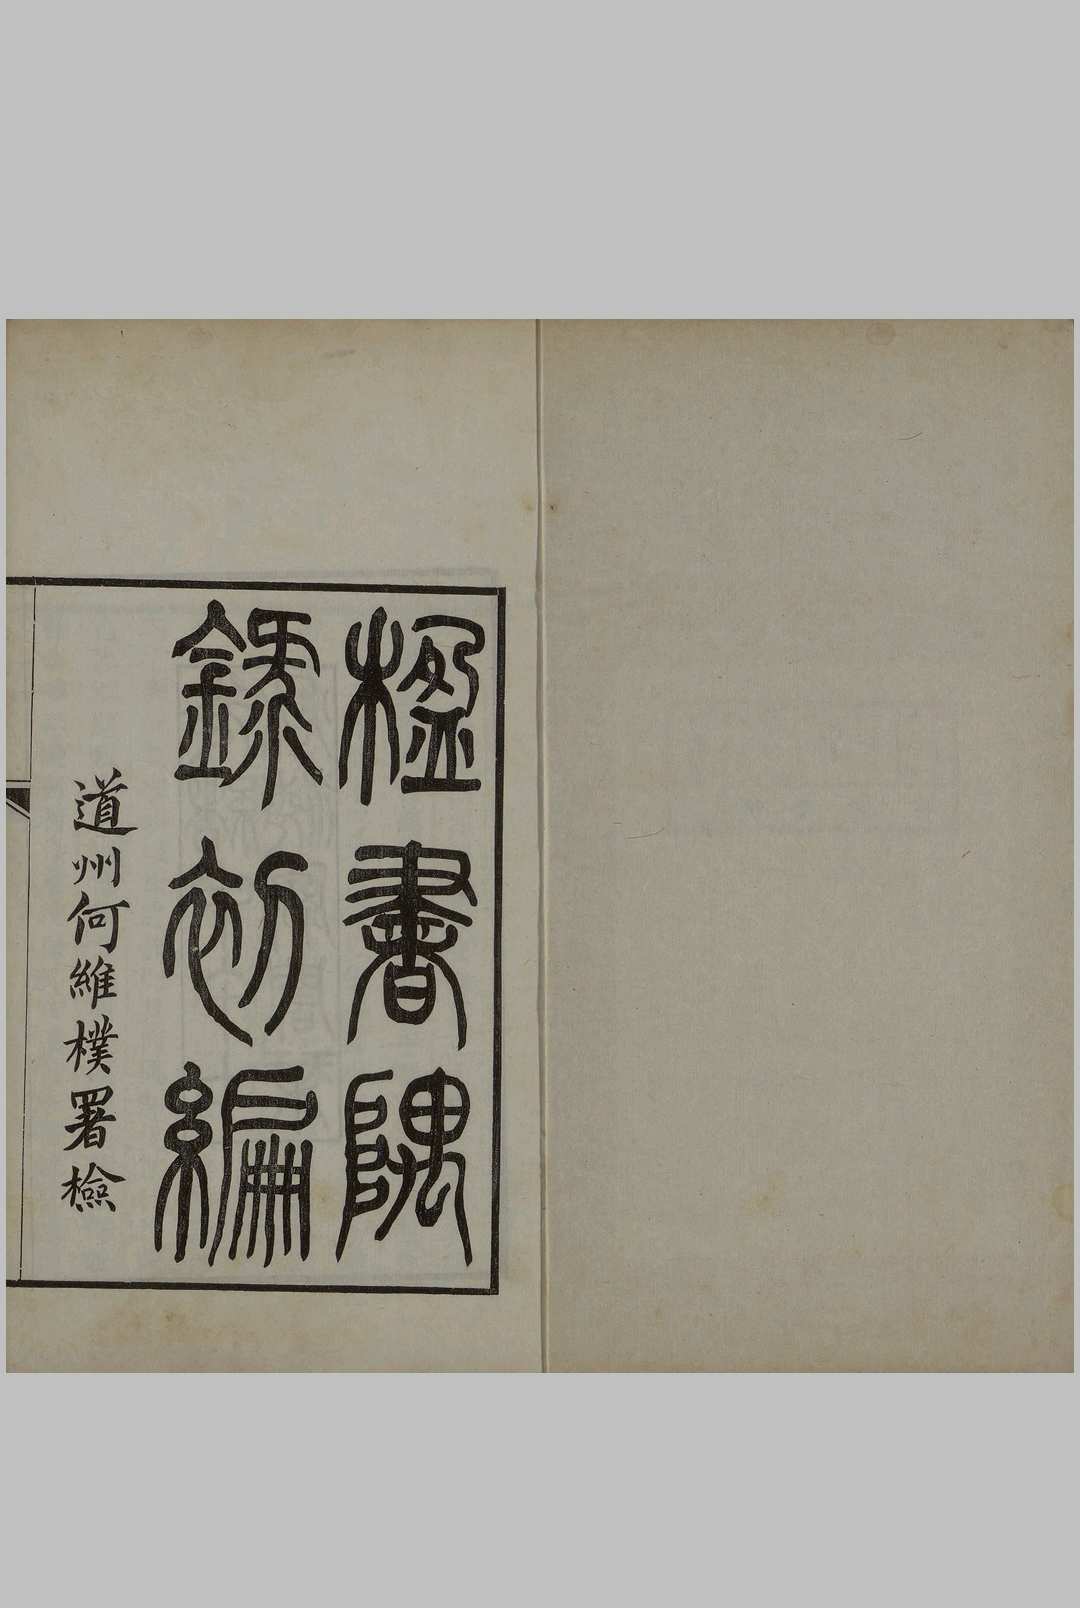 楹書隅
錄初編
道州何維樸署檢